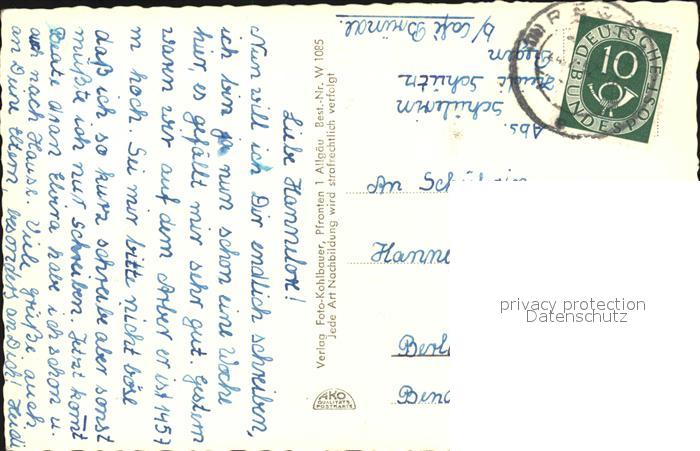 Liebe Hannelore!
Nun will ich Dir endlich schreiben,
ich bin ja nun schon eine Woche
hier, es gefällt mir sehr gut. Gestern
waren wir auf dem Arber er ist 1457
m hoch. Sei mir bitte nicht böse
daß ich so kurz schreibe aber sonst
müßte ich nur schreiben. Jetzt kommt
Beate dran Elvira habe ich schon u.
auch nach Hause. Viele grüße auch
an Deine Eltern, besonders an Dich! Heidi
Verlag Foto-Kohlbauer, Pfronten 1 Allgäu Best.-Nr. W 1085
Jede Art Nachbildung wird strafrechtlich verfolgt
AKO
QUALITÄTS
POSTKARTE
Abs.
Schülerin
Schütz
b/ Café
DEUTSCHE
BUNDESPOST
10
An
Hanne
privacy protection
Datenschutz